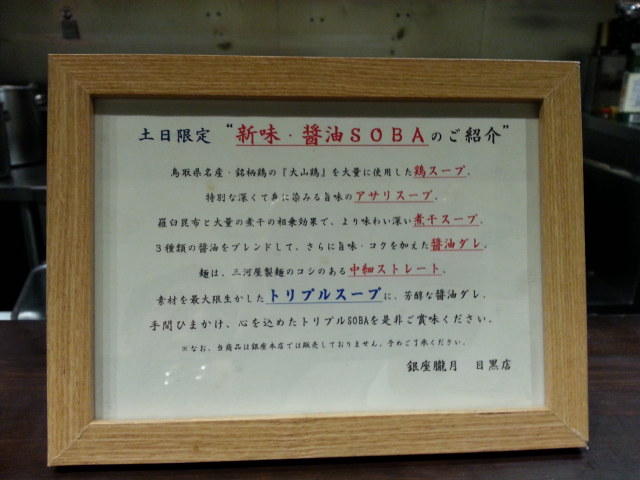 土日限定 “新味・醤油SOBAのご紹介”
鳥取県名産・銘柄鶏の『大山鶏』を大量に使用した鶏スープ。
特別な深くて身に染みる旨味のアサリスープ。
羅臼昆布と大量の煮干の相乗効果で、より味わい深い煮干スープ。
3種類の醤油をブレンドして、さらに旨味・コクを加えた醤油ダレ。
麺は、三河屋製麺のコシのある中細ストレート。
素材を最大限生かしたトリプルスープに、芳醇な醤油ダレ。
手間ひまかけ、心を込めたトリプルSOBAを是非ご賞味ください。
※なお、当商品は銀座本店では販売しておりません。予めご了承ください。
銀座朧月 目黒店